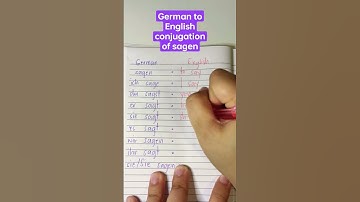 German to
English
conjugation
of sagen
German English
sagen = to say
ich sage = I say
du sagst =
er sagt =
sie sagt =
es sagt =
wir sagen =
ihr sagt =
sie/Sie sagen